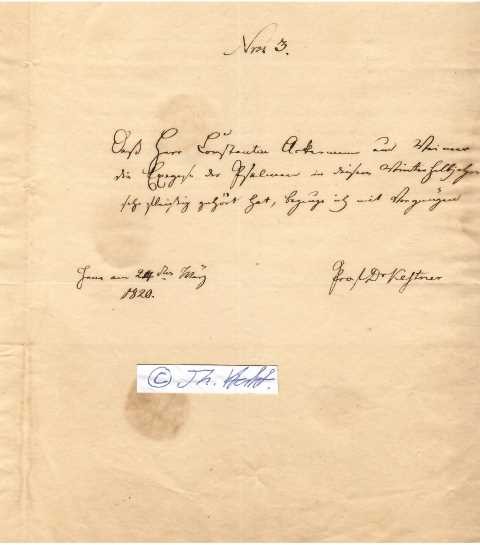 Nro 3.
Daß Herr Constantin Ackermann aus Weimar
die Exegese der Psalmen in diesem Winterhalbjahre
sehr fleißig gehört hat, bezeuge ich mit Vergnügen
Jena am 24 März
1820.
Prof. Dr Kestner
© Th.